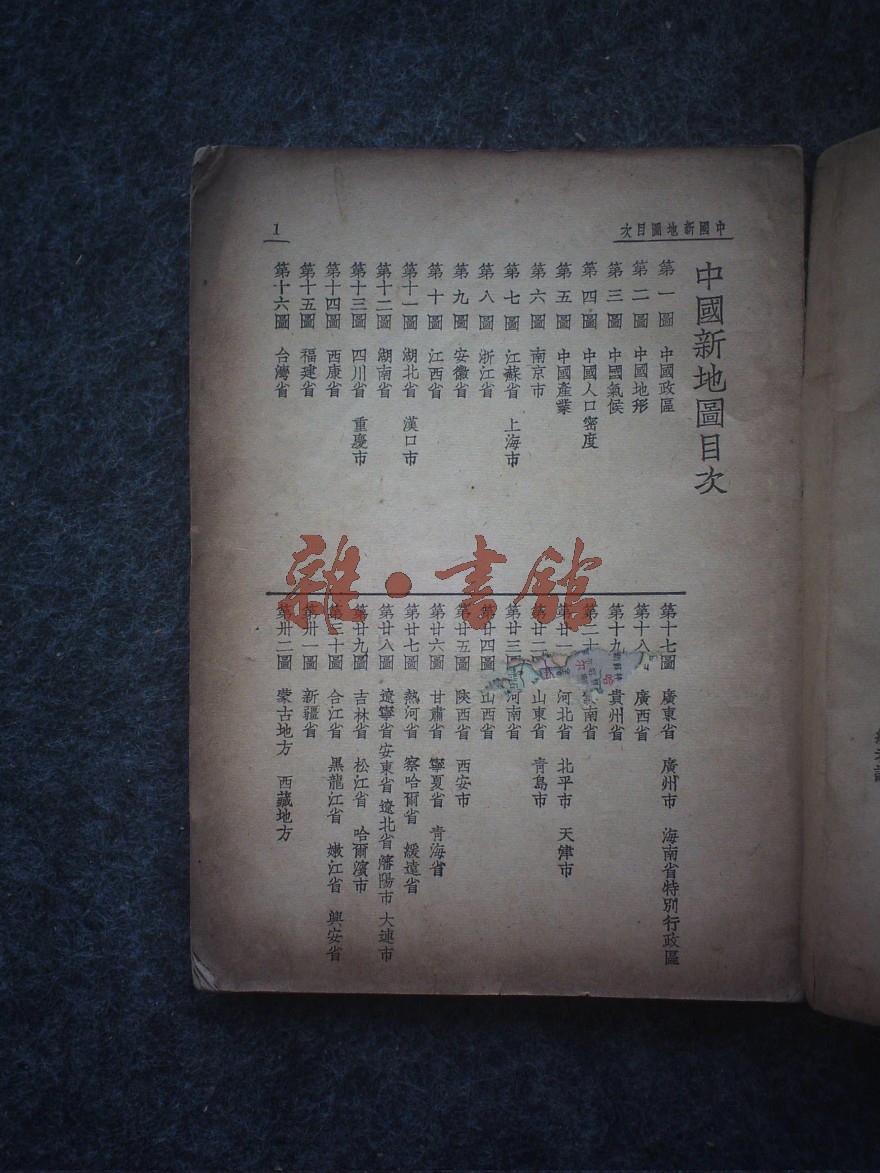 中國新地圖目次
1
中國新地圖目次
第一圖 中國政區
第二圖 中國地形
第三圖 中國氣候
第四圖 中國人口密度
第五圖 中國產業
第六圖 南京市
第七圖 江蘇省 上海市
第八圖 浙江省
第九圖 安徽省
第十圖 江西省
第十一圖 湖北省 漢口市
第十二圖 湖南省
第十三圖 四川省 重慶市
第十四圖 西康省
第十五圖 福建省
第十六圖 台灣省
第十七圖 廣東省 廣州市 海南省特別行政區
第十八 廣西省
第十九 貴州省
第二十 南省
第廿一 河北省 北平市 天津市
第廿 山東省 青島市
第廿三 河南省
第廿四圖 山西省
第廿五圖 陝西省 西安市
第廿六圖 甘肅省 寧夏省 青海省
第廿七圖 熱河省 察哈爾省 綏遠省
第廿八圖 遼寧省 安東省 遼北省 瀋陽市 大連市
第廿九圖 吉林省 松江省 哈爾濱市
第三十圖 合江省 黑龍江省 嫩江省 興安省
第卅一圖 新疆省
第卅二圖 蒙古地方 西藏地方
雜·書館